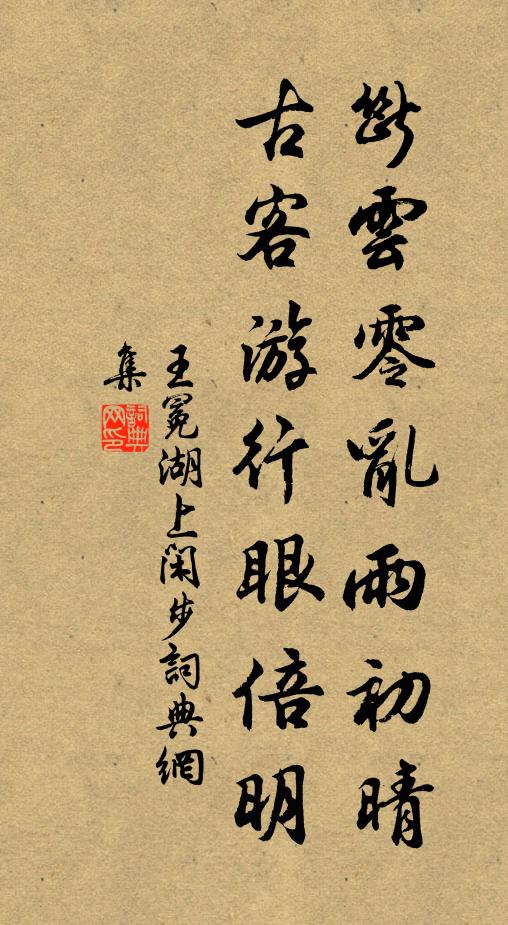 斷雲零亂雨初晴
古客游行眼倍明
王冕湖上閑步詞典網
集
詞典网印